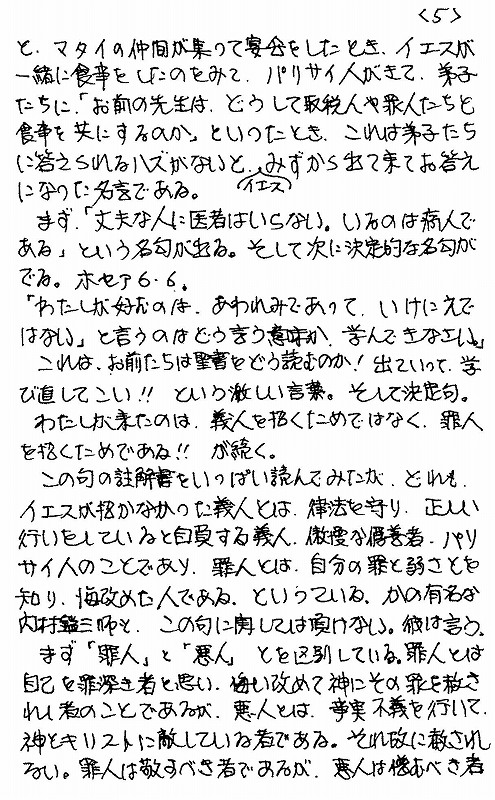 <5>
と、マタイの仲間が集って宴会をしたとき、イエスが
一緒に食事をしたのをみて、パリサイ人がきて、弟子
たちに、「お前の先生は、どうして取税人や罪人たちと
食事を共にするのか」といったとき、これは弟子たち
に答えられるハズがないと、みずから出て来てお答え
イエス
になった名言である。
まず、「丈夫な人に医者はいらない。いるのは病人で
ある」という名句が出る。そして次に決定的な名句が
でる。ホセア6・6。
「わたしが好むのは、あわれみであって、いけにえで
はない」と言うのはどう言う意味か、学んできなさい。」
これは、お前たちは聖書をどう読むのか!出ていって、学
び直してこい!!という激しい言葉。そして決定句。
わたしが来たのは、義人を招くためではなく、罪人
を招くためである!!が続く。
この句の註解書をいっぱい読んでみたが、どれも、
イエスが招かなかった義人とは、律法を守り、正しい
行いをしていると自負する義人、傲慢な偽善者、パリ
サイ人のことであり、罪人とは、自分の罪と弱さとを
知り、悔改めた人である、といっている、かの有名な
内村鑑三師も、この句に関しては負けない。彼は言う。
まず「罪人」と「悪人」とを区別している。罪人とは
自己を罪深き者と思い、悔い改めて神にその罪を赦さ
れし者のことであるが、悪人とは、事実不義を行いて、
神とキリストに敵している者である。それ故に赦され
ない。罪人は敬すべき者であるが、悪人は憎むべき者